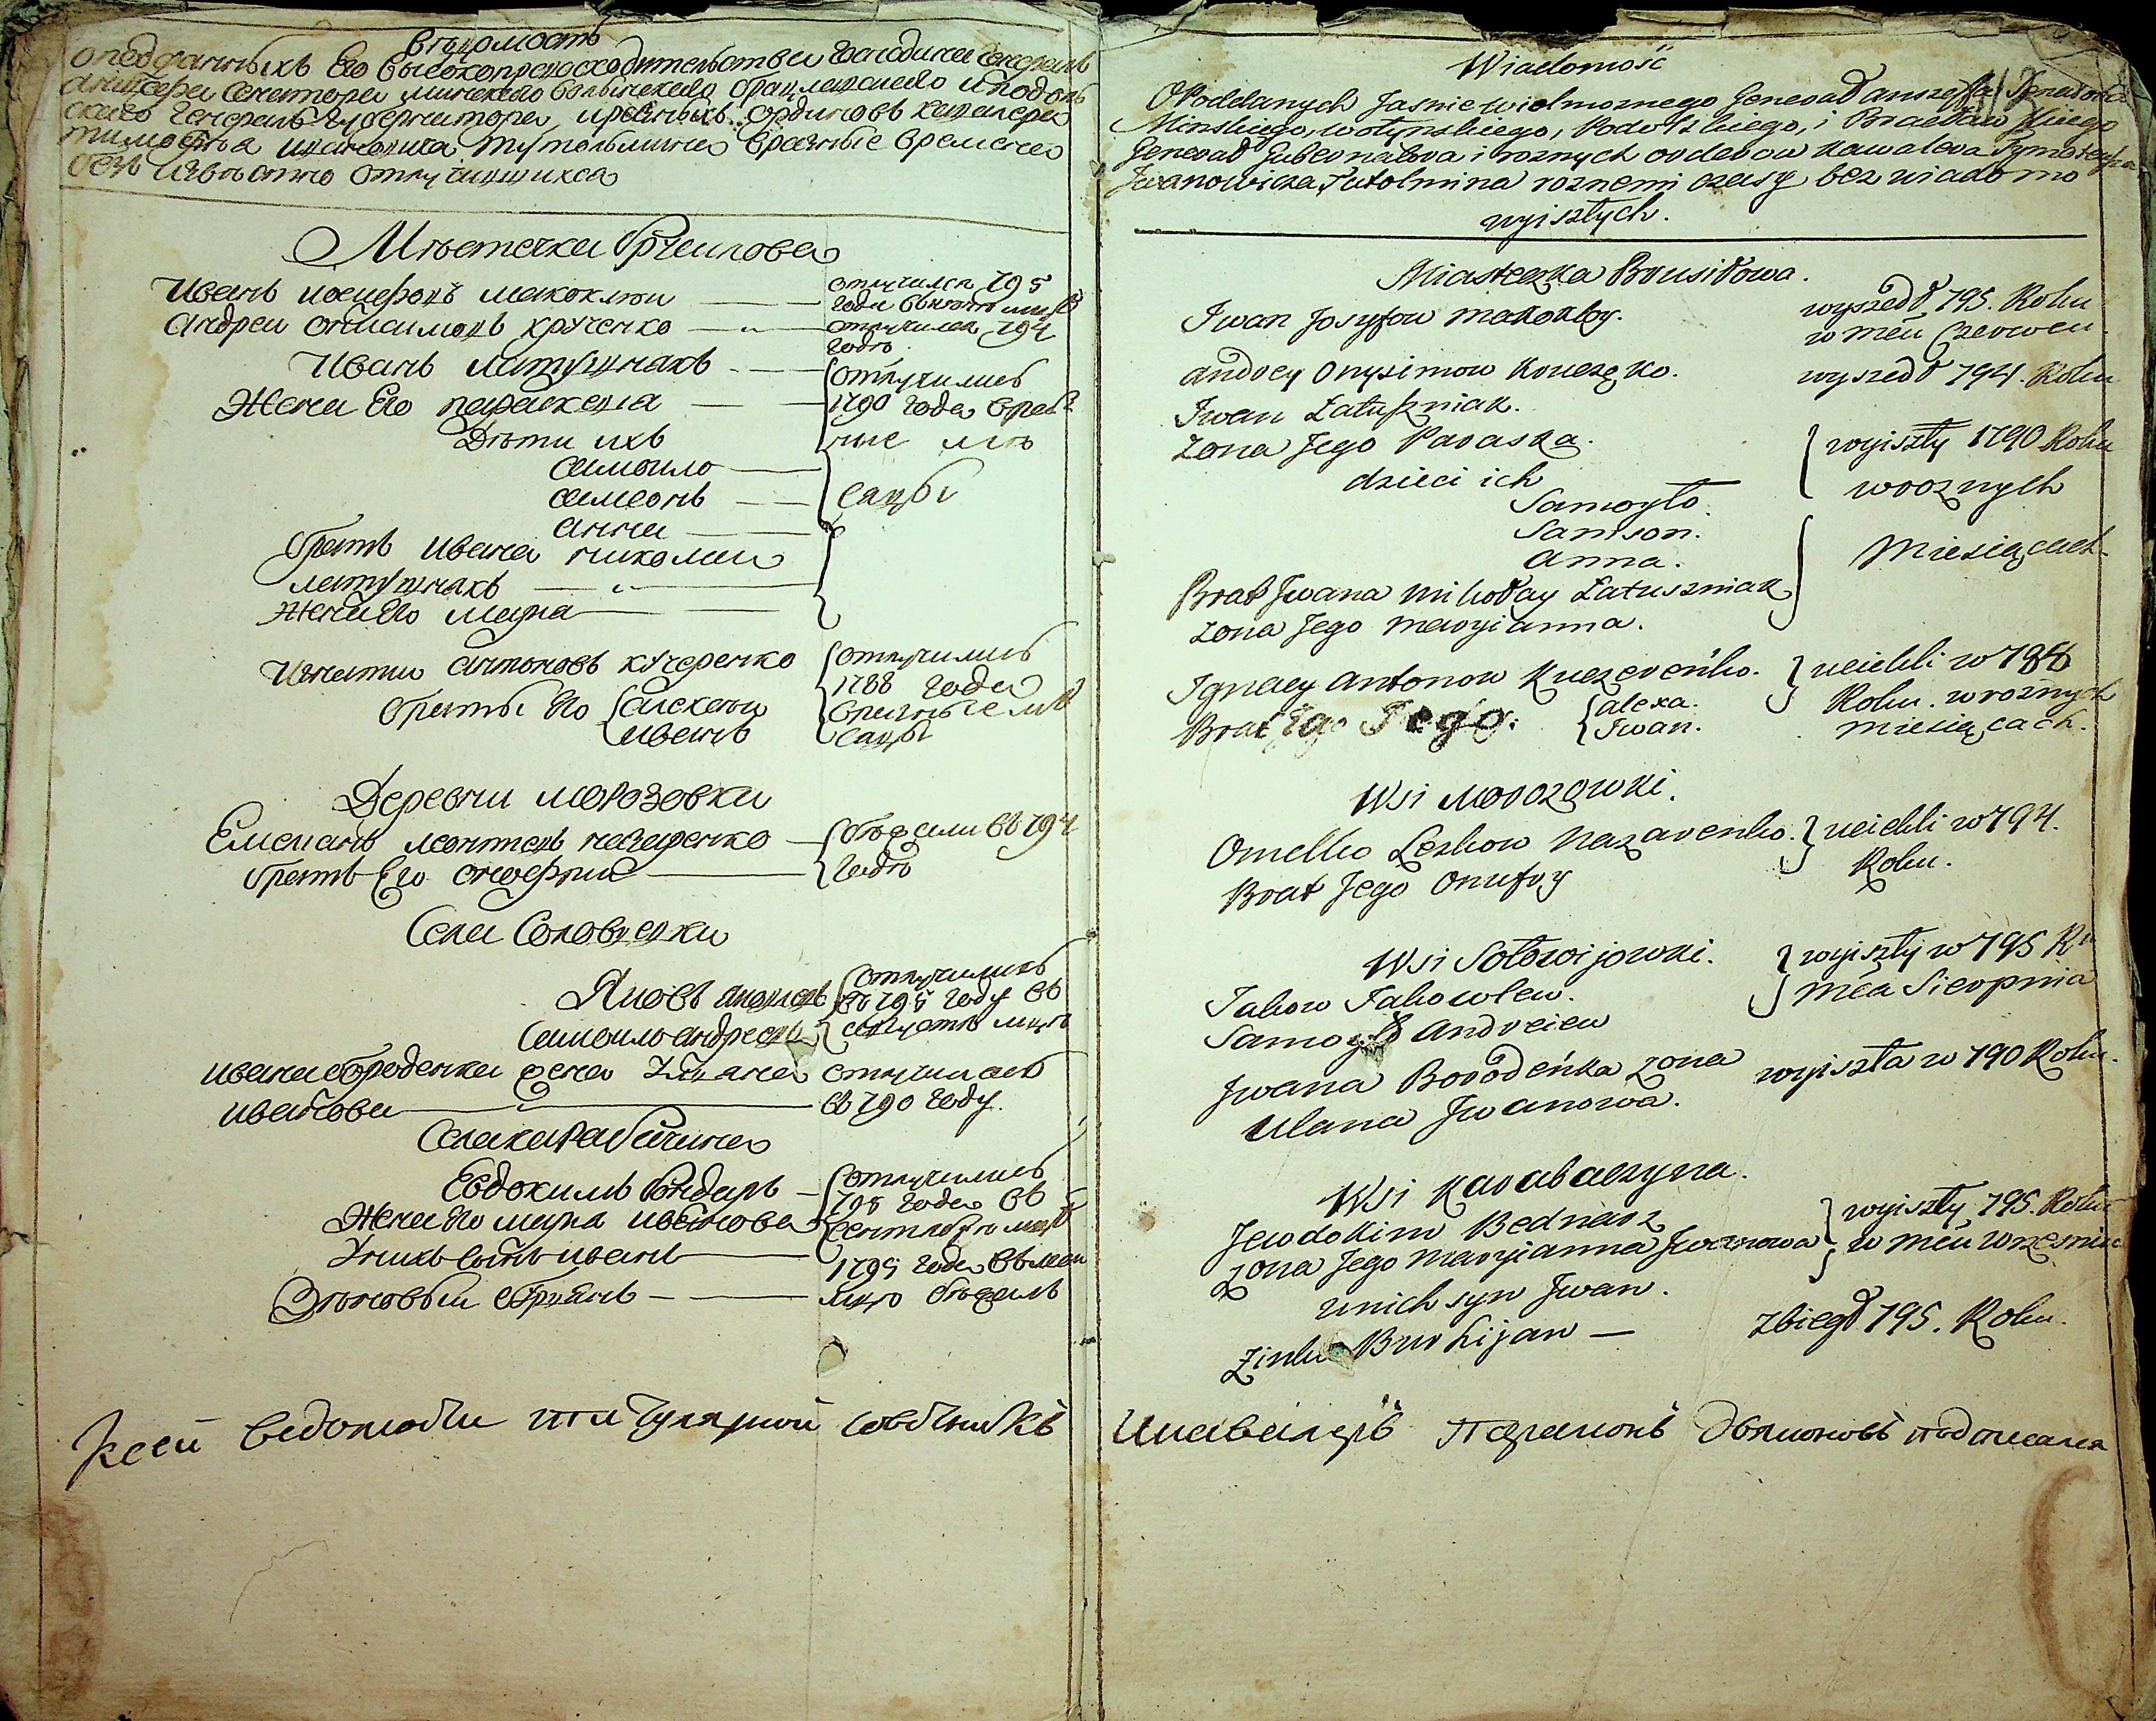 Ведомость
о подданныхъ Его Высокопревосходительства Господина Генералъ
Аншефа Сенатора Минскаго Волынскаго Брацлавскаго и Подоль
скаго Генералъ Губернатора и разныхъ ординовъ кавалера
Тимофѣа Ивановича Тутолмина вразные времена
безъ извѣстно отлучившихся
Мѣстечка Брусилова
Иванъ иосифовъ макоклюи
отлучился 795
года въ июнѣ мцѣ
Андреи онисимовъ крученко
отлучился 794
годѣ
Иванъ латушнакъ
Жена Его параскева
Дѣти ихъ
самоило
самсонъ
анна
братъ ивана николаи
латушнакъ
жена Его марիа
отлучились
1790 года враз
ные мѣ
сяцы
Игнатии антоновъ кучеренко
браты Его алексѣи
иванъ
отлучились
1788 года
вразные мѣ
сяцы
Деревни морозовки
Емелианъ леонтиевъ назаренко
братъ Его онофрии
бѣжали въ 794
годѣ
Села Соловиевки
Яковъ яковлевъ
Самоило андреевъ
отлучились
въ 795 году въ
августѣ мцѣ
ивана бороденка жена улиана
ивановa
отлучилась
въ 790 году.
Села карабачина
Евдокимъ бондаръ
Жена Его мариа иванова
У нихъ сынъ иванъ
отлучились
795 года въ
сентябрѣ мцѣ
Зѣновъи
1795 года въ маи
мцѣ бѣжалъ
Wiadomość
O Poddanych Jasnie wielmoznego Generał anszeffa Senadora
Minskiego, wołynskiego, Podolskiego, i Bracławskiego
Generał Gubernatora i roznych orderow kawalera Tymoteusza
Iwanowicza Tutolmina roznemi czasy bez wiadomo
wyiszłych.
Miasteczka Brusiłowa.
Iwan Josyfow makokłoy.
wyszedł 795. Roku
w mcu Czerwcu.
andrey onysimow Kruczęko.
wyszedł 794. Roku
Iwan Łatuszniak.
zona Jego Paraska.
dzieci ich
Samoyło.
Samson.
anna.
Brat Iwana mikołay Łatuszniak
zona Jego maryianna.
wyiszły 1790 Roku
w roznych
Miesiącach
Ignacy antonow Kuczereńko.
Brat Jego.
alexa.
Iwan.
uciekli w 788
Roku. w roznych
miesiącach.
Wsi Morozowki.
Omelko Leskow Nazarenko.
Brat Jego Onufry
uciekli w 794.
Roku.
Wsi Sołowijowki.
Jakow Jakowlew.
Samoyło Andreiew
wyiszły w 795 Ru
mca Sierpnia
Iwana Borodeńka zona
Ulana Iwanowa.
wyiszła w 790 Roku.
Wsi Karabaczyna.
Jewdokim Bednarz
zona Jego maryianna Iwanowa
unich syn Iwan.
wyiszły 795. Roku
w mcu wrzesniu
Zinko Burkijan
zbiegł 795. Roku.
Ксеи ведомости титулярной советникъ Икавалеръ Парамонъ подписался